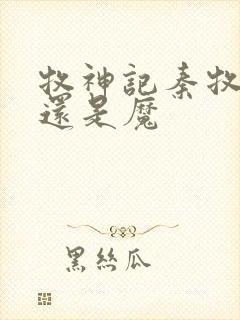 牧神記秦牧
還是魔
黑絲瓜